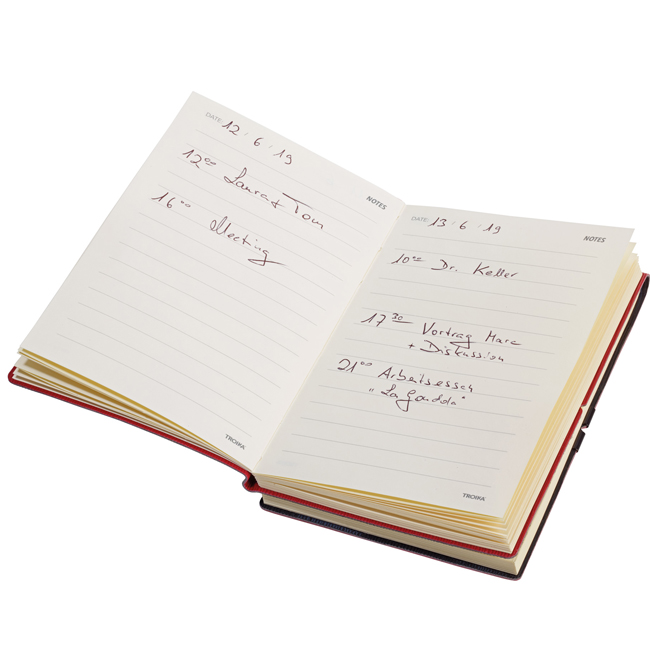 DATE: 12 / 6 / 19
NOTES
12 00 Laurent Tom
16 00 Meeting
TROIKA
DATE: 13 / 6 / 19
NOTES
10 00 Dr. Keller
17 30 Vortrag Marc
+ Diskussion
21 00 Arbeitsessen
"La Gondola"
TROIKA